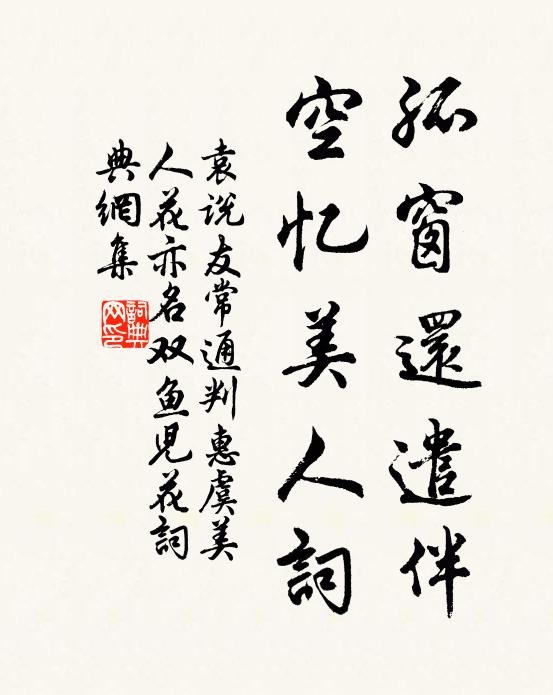 孤窗還遣伴
空忆美人詞
袁说友常通判惠虞美
人花亦名双鱼児花詞
典網集
詞典
网印